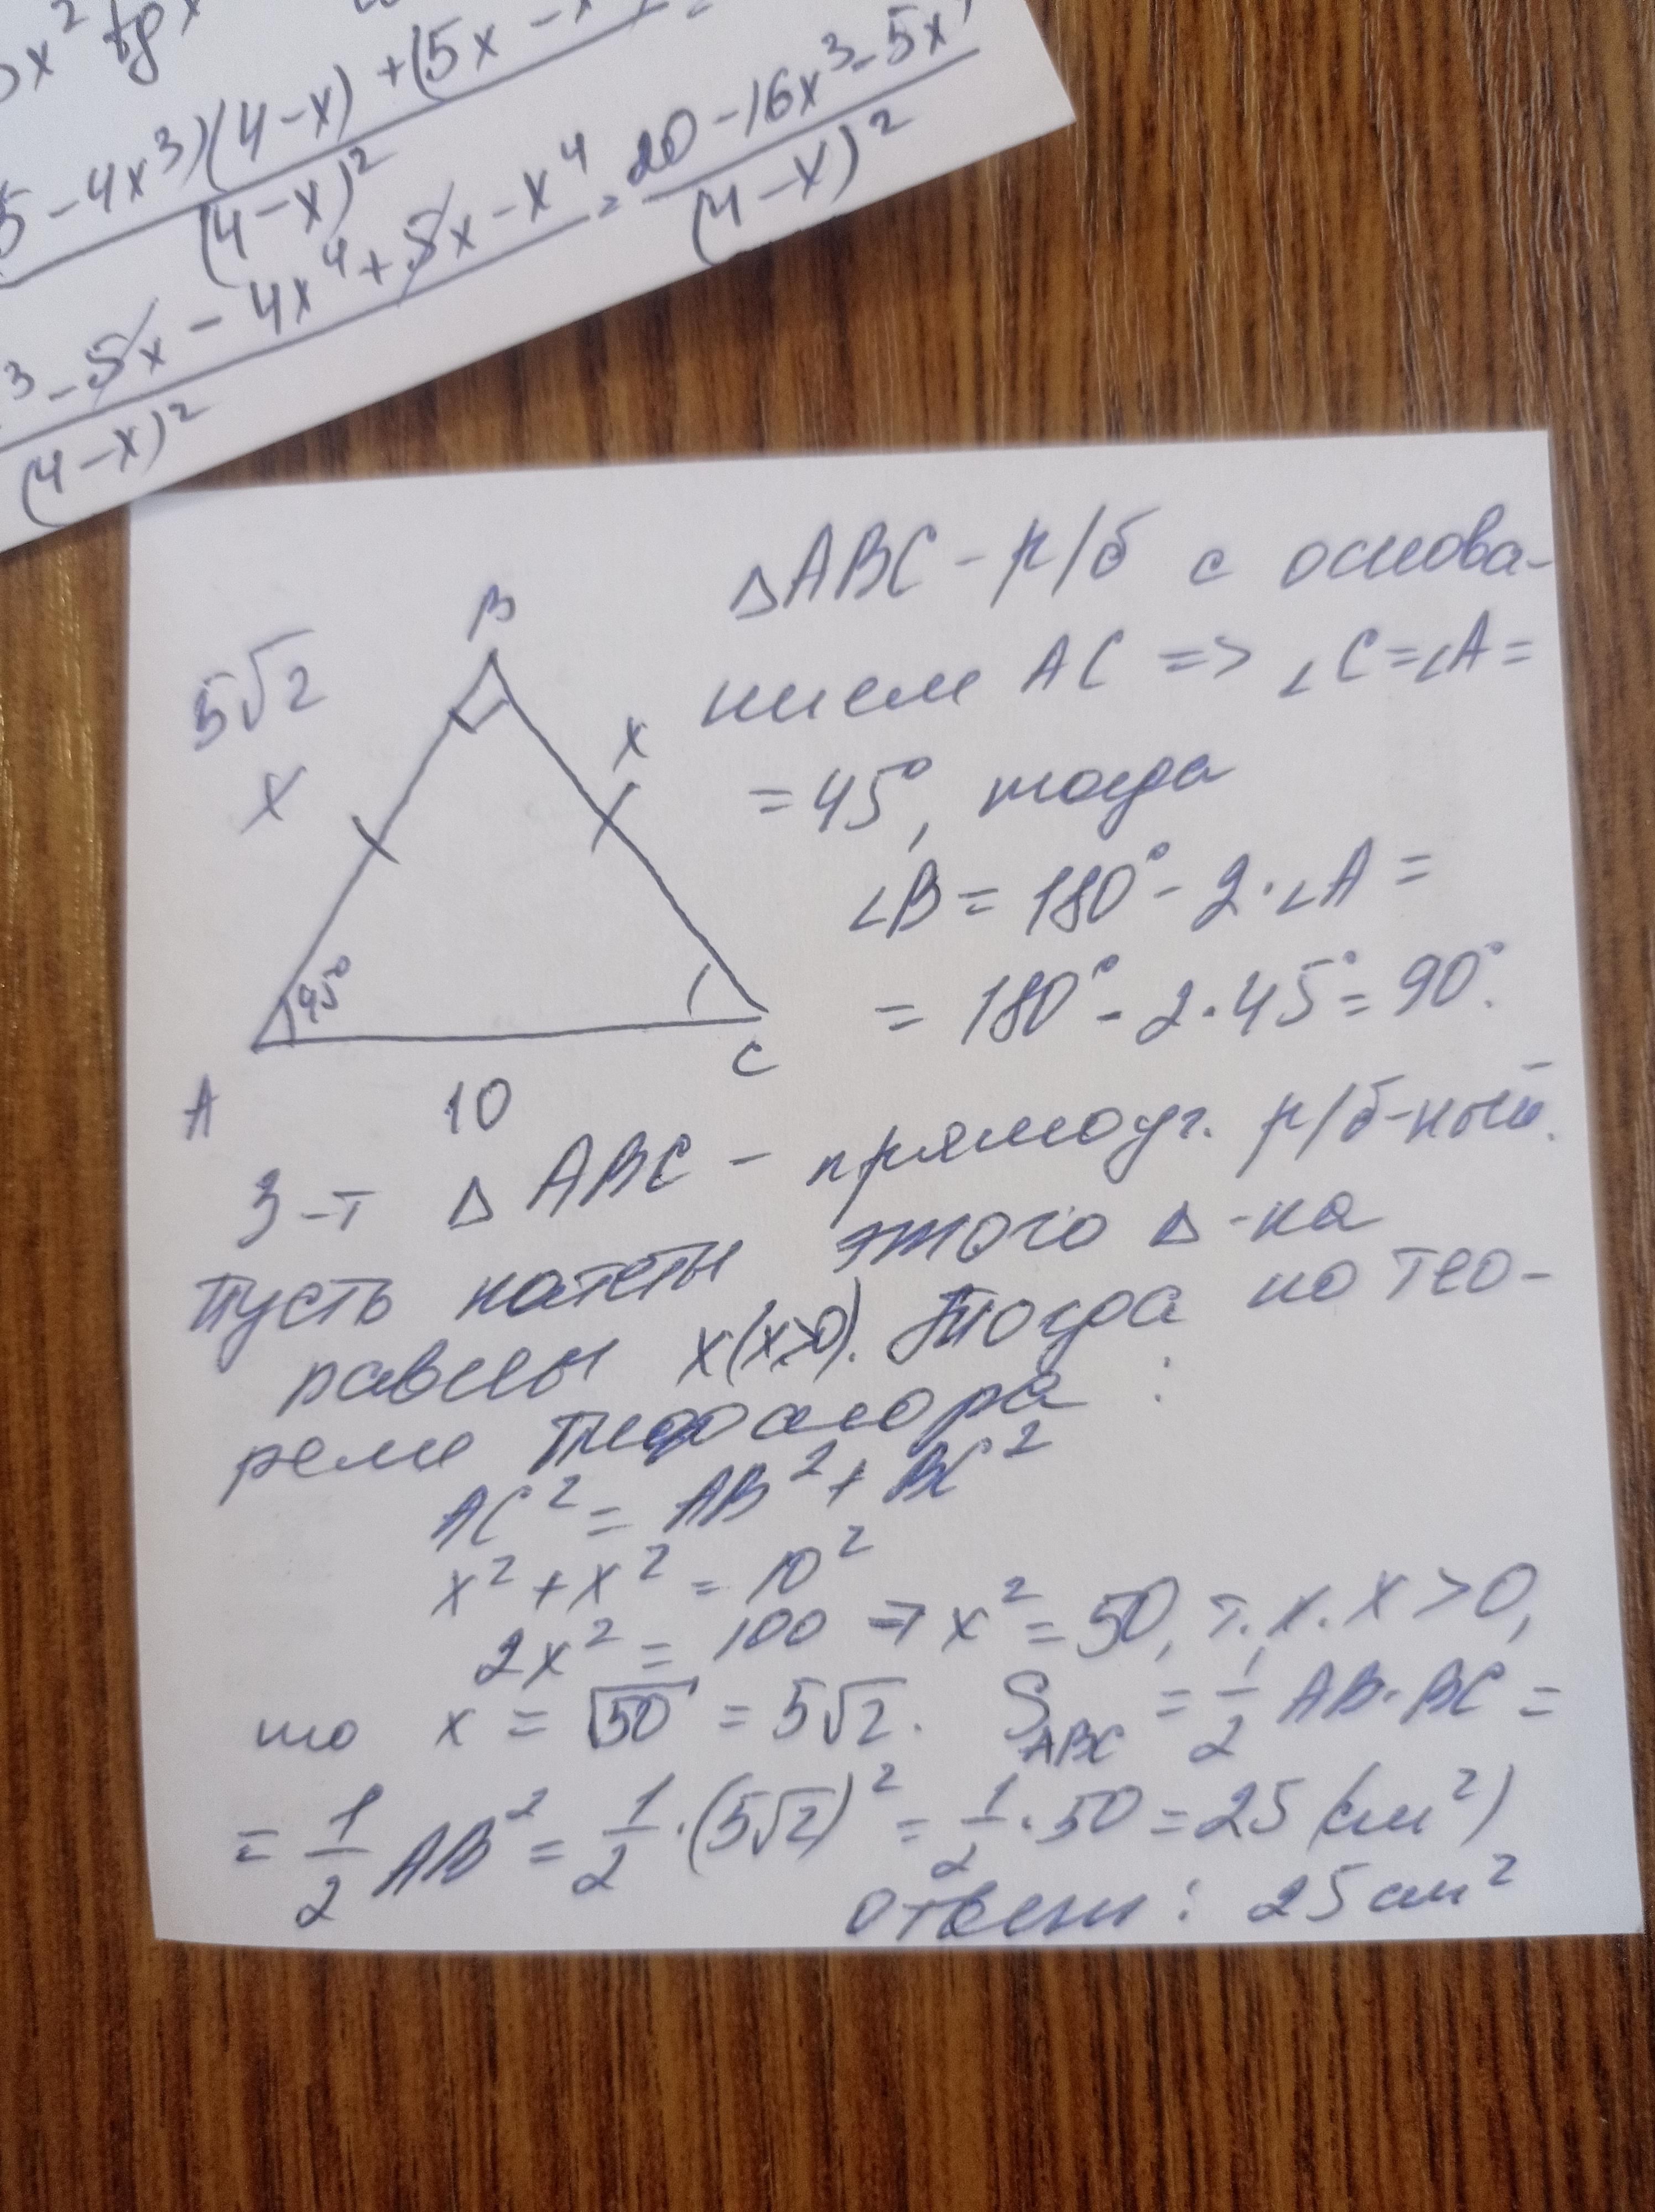 x² tg x
5 - 4x³)(4-x) + (5x - x
(4-x)²
³ - 5x - 4x⁴ + 5x - x⁴ = 20 - 16x³ - 5x
(4-x)²
(4-x)²
5√2
x
B
x
45°
A
10
C
△ABC - р/б с основа-
нием AC => ∠C=∠A=
= 45°, тогда
∠B = 180° - 2·∠A =
= 180° - 2·45° = 90°.
З-т △ ABC - прямоуг. р/б-ный.
Пусть катеты этого △-ка
равны x(x>0). Тогда по тео-
реме Пифагора :
AC² = AB² + BC²
x² + x² = 10²
2x² = 100 => x² = 50, т.к. x > 0,
то x = √50 = 5√2. S_ABC = 1/2 AB·BC =
= 1/2 AB² = 1/2·(5√2)² = 1/2·50 = 25 (см²)
Ответ: 25 см²